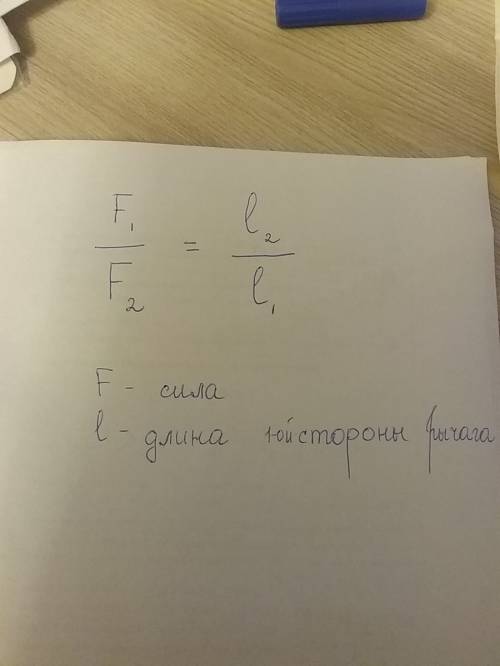 F₁/F₂ = l₂/l₁
F - сила
l - длина 1-ой стороны рычага